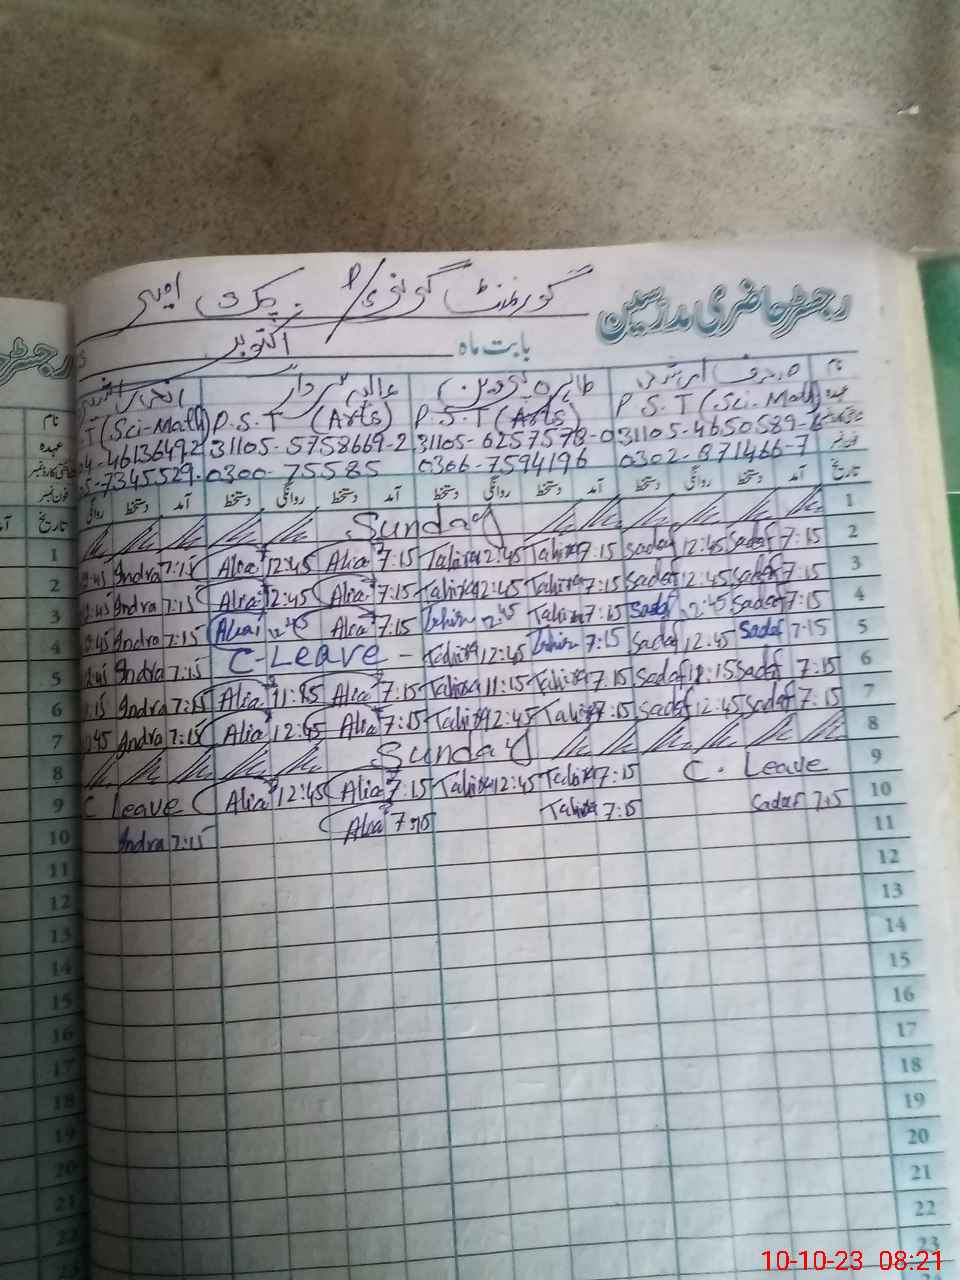 رجسٹر حاضری مدرسین
گورنمنٹ گرلز
بابت ماہ اکتوبر
نام
عہدہ P.S.T (Sci-Math) P.S.T (Arts) P.S.T (Arts) T (Sci-Math)
31105-4650589-6 31105-6257578-0 31105-5758669-2 04-4613649-2
فون نمبر 0302-871466-7 0306-7594196 0300-75585 05-7345529
تاریخ آمد دستخط روانگی دستخط آمد دستخط روانگی دستخط آمد دستخط روانگی دستخط آمد دستخط روانگی
1 Sunday
2 7:15 Sadaf 12:45 Sadaf 7:15 Tahira 12:45 Tahira 7:15 Alia 12:45 Alia 7:15 Indra 12:45
3 7:15 Sadaf 12:45 Sadaf 7:15 Tahira 12:45 Tahira 7:15 Alia 12:45 Alia 7:15 Indra 12:45
4 7:15 Sadaf 12:45 Sadaf 7:15 Tahira 12:45 Tahira 7:15 Alia 12:45 Alia 7:15 Indra 12:45
5 7:15 Sadaf 12:45 Sadaf 7:15 Tahira 12:45 Tahira - C-Leave 7:15 Indra 12:45
6 7:15 Sadaf 11:15 Sadaf 7:15 Tahira 11:15 Tahira 7:15 Alia 11:15 Alia 7:15 Indra 11:15
7 7:15 Sadaf 12:45 Sadaf 7:15 Tahira 12:45 Tahira 7:15 Alia 12:45 Alia 7:15 Indra 12:45
8 Sunday
9 C. Leave 7:15 Tahira 12:45 Tahira 7:15 Alia 12:45 Alia C Leave
10 7:15 Sadaf 7:15 Tahira 7:15 Alia 7:15 Indra
11
12
13
14
15
16
17
18
19
20
21
22
23
رجسٹر
نام
عہدہ
فون نمبر
تاریخ
1
2
3
4
5
6
7
8
9
10
11
12
13
14
15
16
17
18
19
20
21
22
10-10-23 08:21